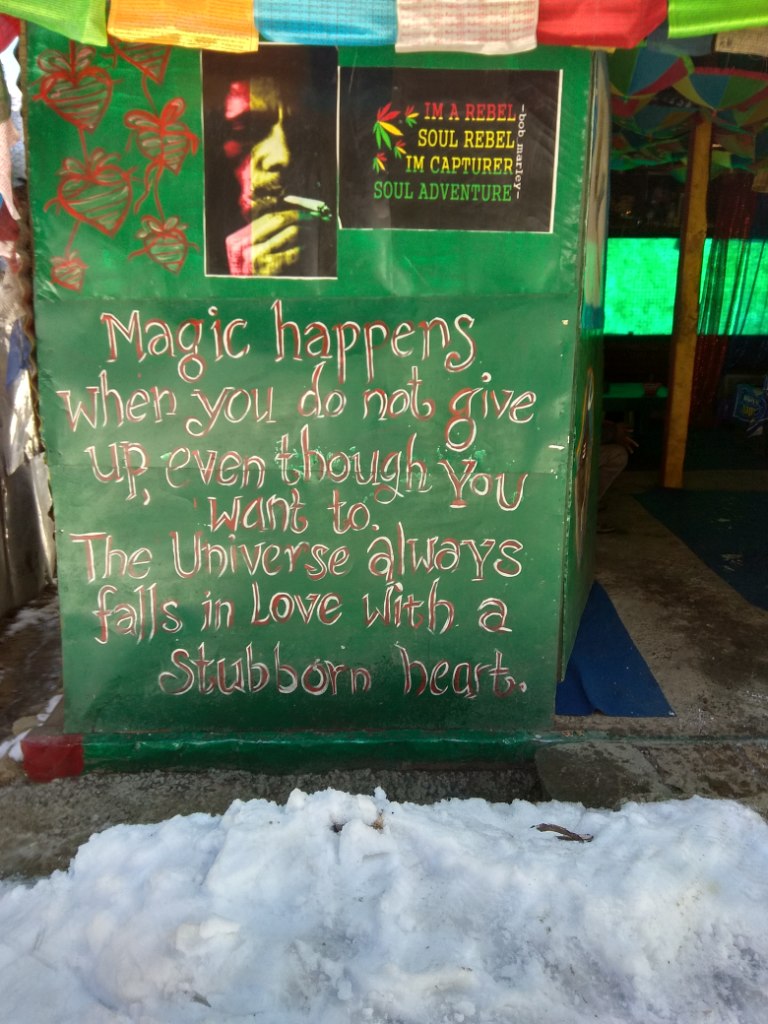 IM A REBEL
SOUL REBEL
IM CAPTURER
SOUL ADVENTURE
-bob marley-
Magic happens
when you do not give
up, even though you
want to.
The Universe always
falls in Love with a
stubborn heart.